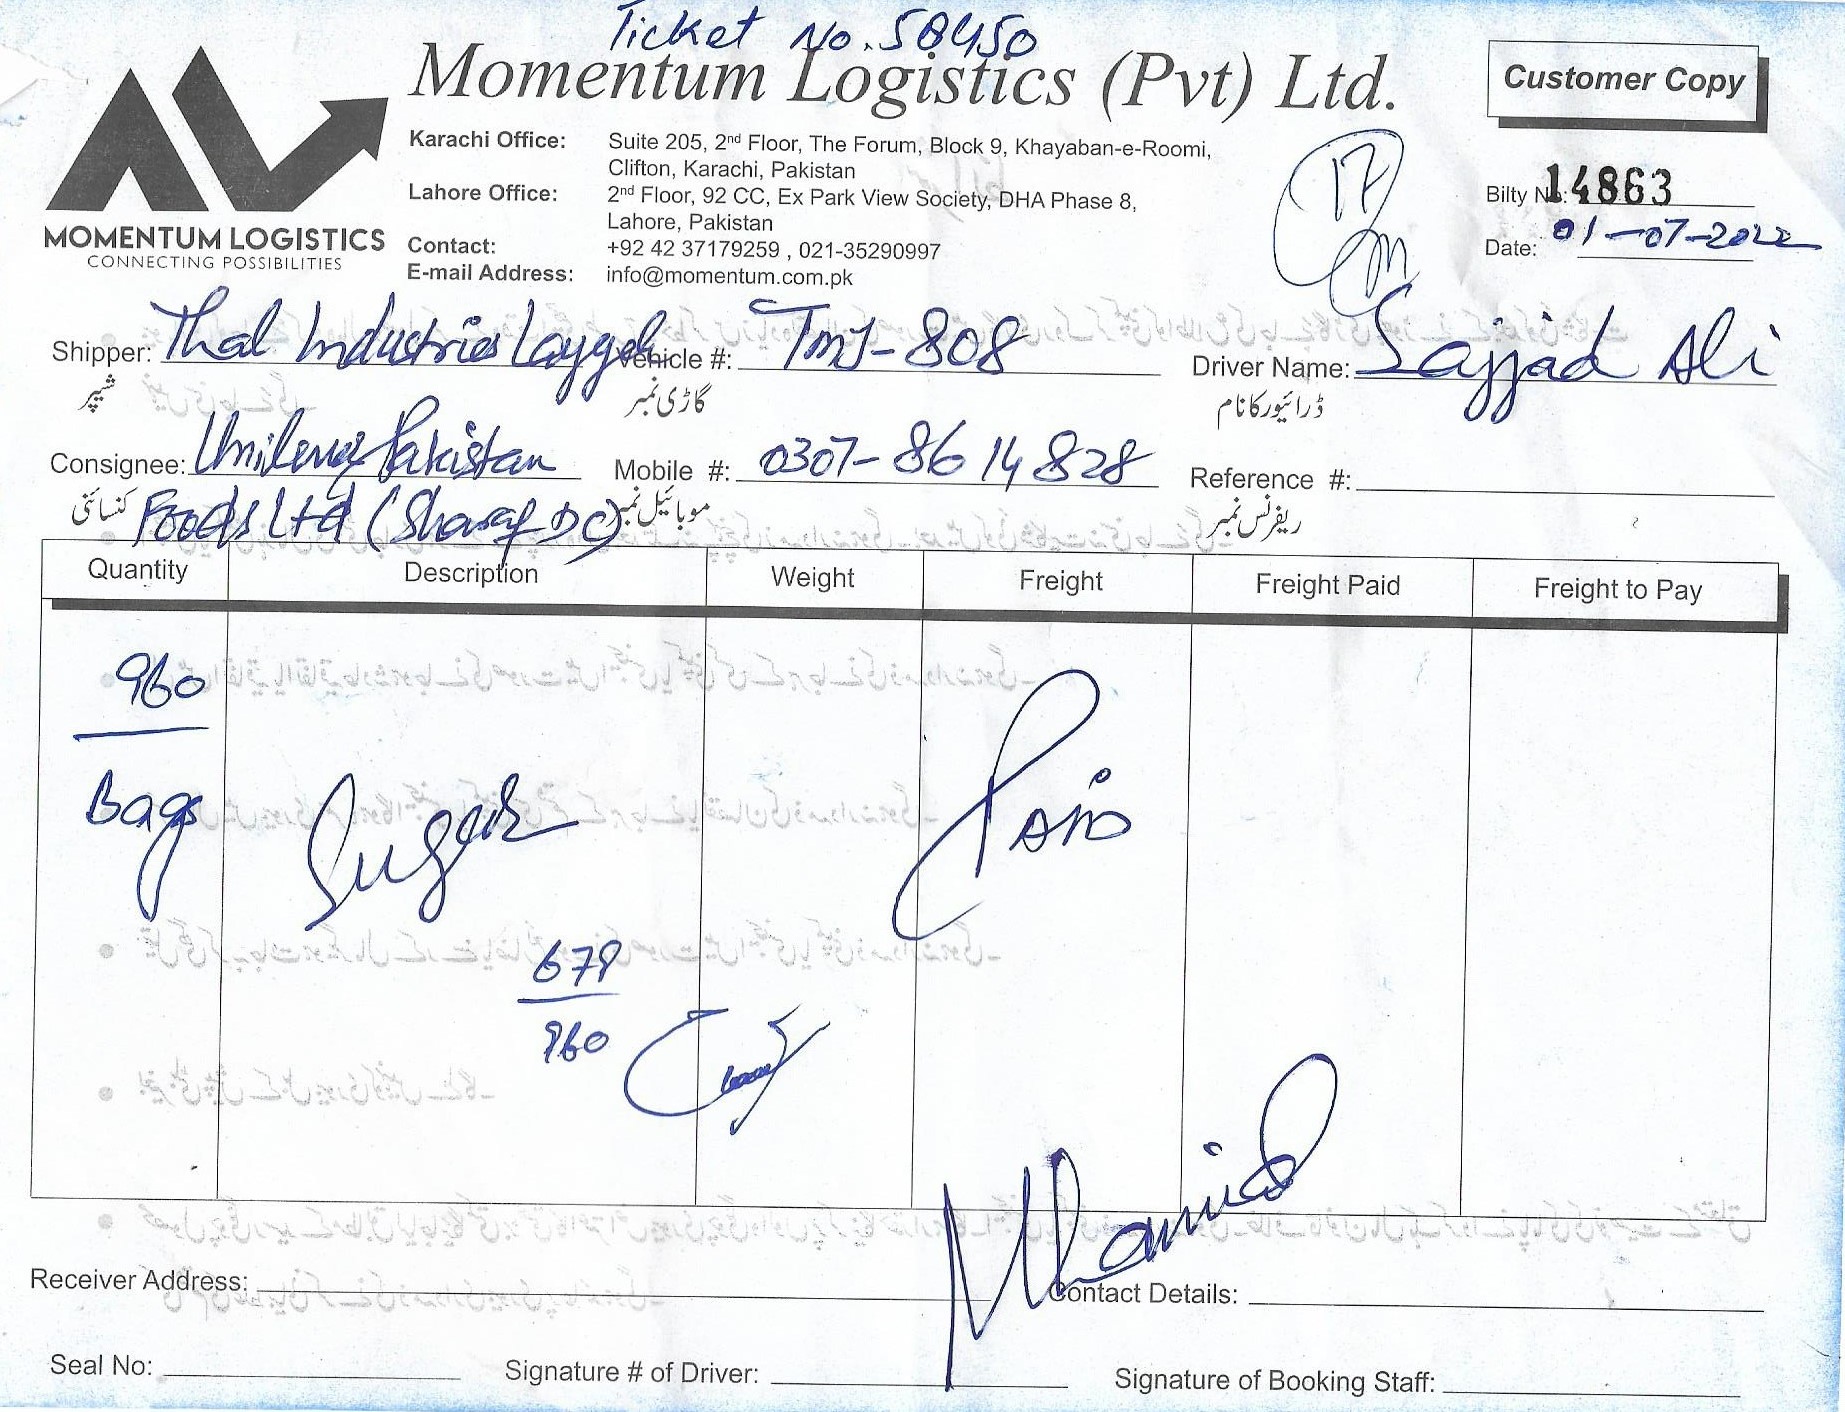 Ticket No. 58450
Momentum Logistics (Pvt) Ltd.
Customer Copy
MOMENTUM LOGISTICS
CONNECTING POSSIBILITIES
Karachi Office: Suite 205, 2nd Floor, The Forum, Block 9, Khayaban-e-Roomi,
Clifton, Karachi, Pakistan
Lahore Office: 2nd Floor, 92 CC, Ex Park View Society, DHA Phase 8,
Lahore, Pakistan
Contact: +92 42 37179259 , 021-35290997
E-mail Address: info@momentum.com.pk
17
Bilty No: 14863
Date: 01-07-2022
Shipper: Thal Industries Layyah Vehicle #: TMJ-808 Driver Name: Sajjad Ali
شیپر گاڑی نمبر ڈرائیور کا نام
Consignee: Unilever Pakistan Mobile #: 0307-8614828 Reference #:
کنسائنی Foods Ltd (Sharaf DC) موبائیل نمبر ریفرنس نمبر
Quantity Description Weight Freight Freight Paid Freight to Pay
960
Bags Sugar Paid
679
960
Receiver Address: Contact Details:
Seal No: Signature # of Driver: Signature of Booking Staff: